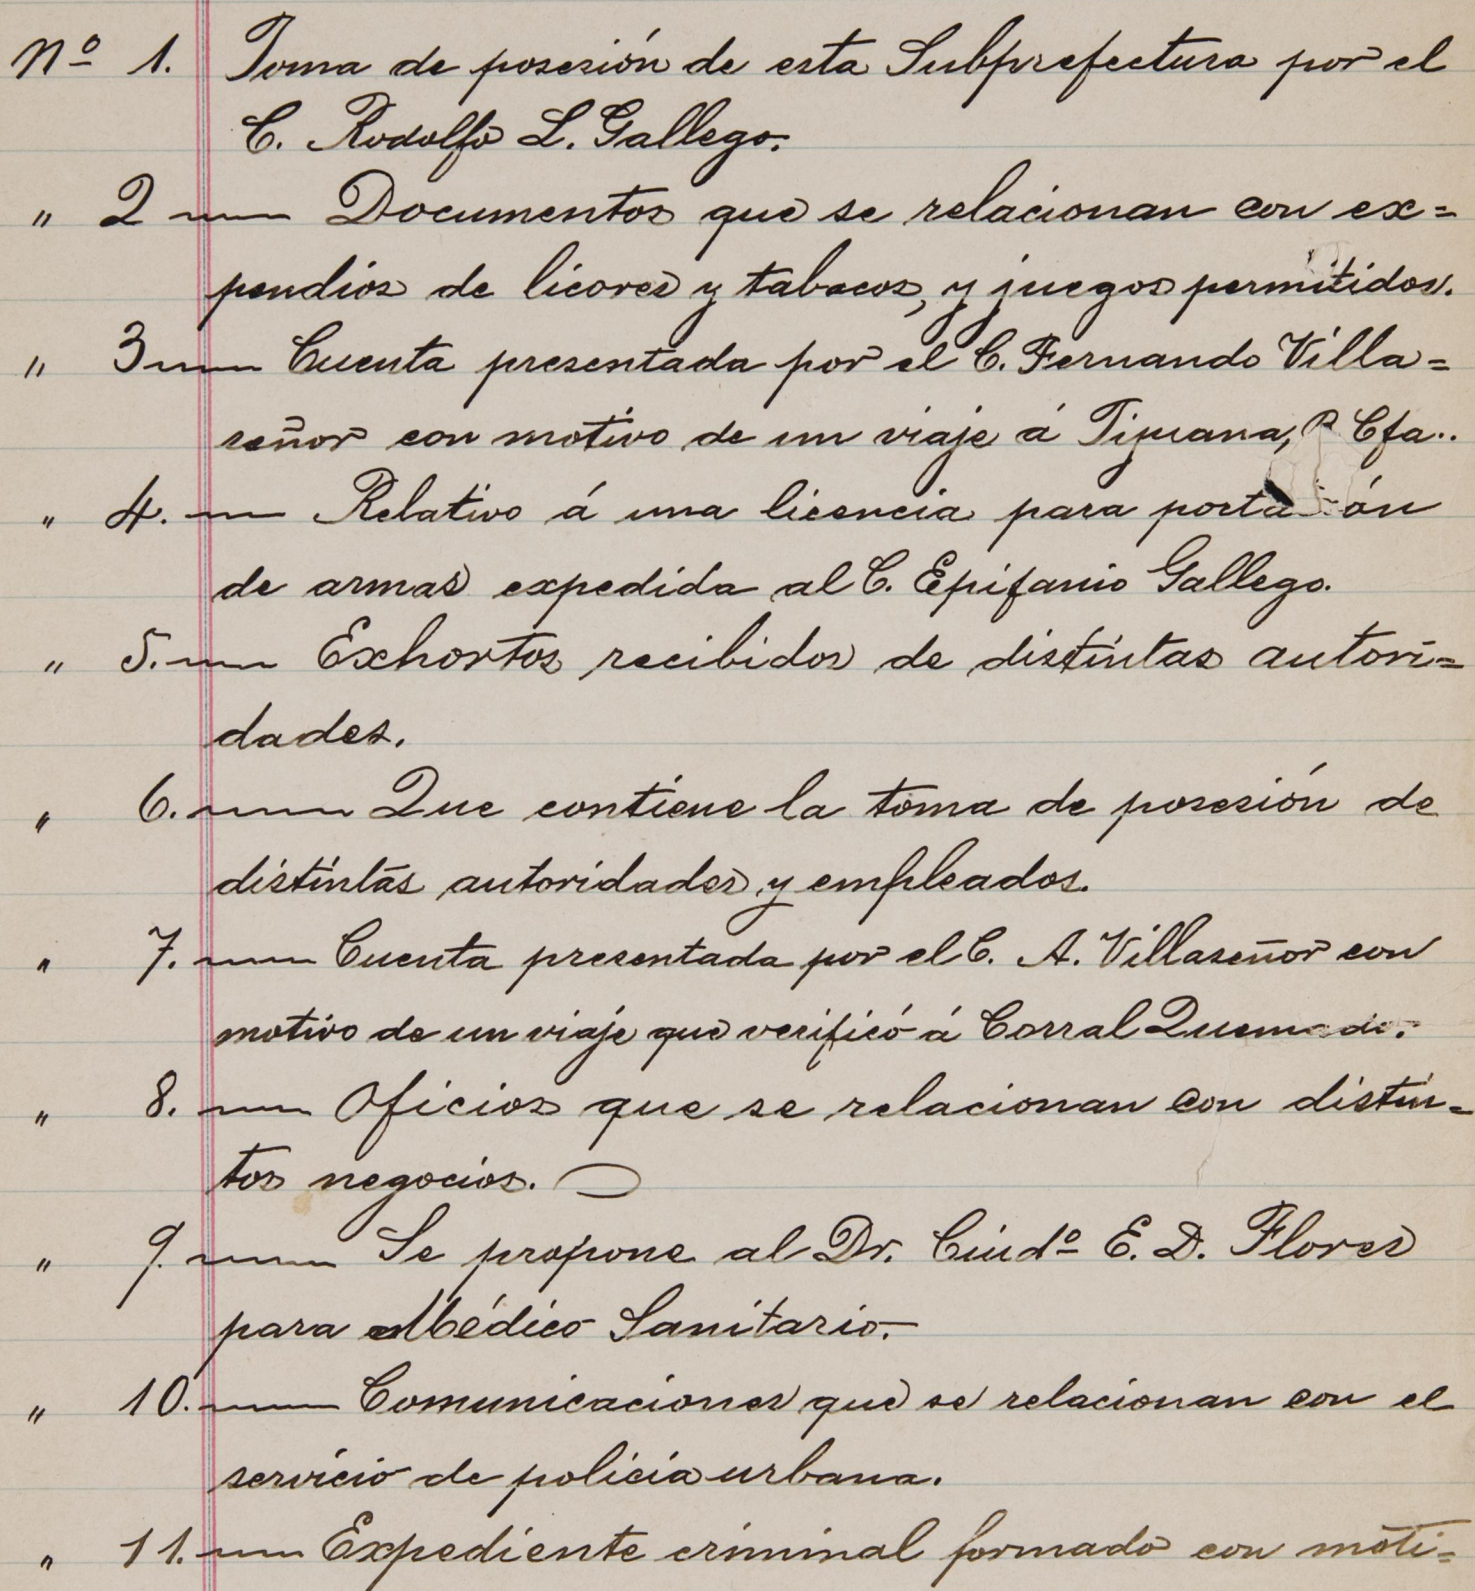 Nº 1. Toma de posesión de esta Subprefectura por el
C. Rodolfo L. Gallego.
" 2 — Documentos que se relacionan con ex=
pendios de licores y tabacos, y juegos permitidos.
" 3 — Cuenta presentada por el C. Fernando Villa=
señor con motivo de un viaje á Tijuana, B Cfa..
" 4. — Relativo á una licencia para portación
de armas expedida al C. Epifanio Gallego.
" 5. — Exhortos recibidos de distintas autori=
dades.
" 6. — Que contiene la toma de posesión de
distintas autoridades y empleados.
" 7. — Cuenta presentada por el C. A. Villaseñor con
motivo de un viaje que verificó á Corral Quemado.
" 8. — Oficios que se relacionan con distin=
tos negocios.
" 9. — Se propone al Dr. Ciudº E. D. Flores
para Médico Sanitario.
" 10. — Comunicaciones que se relacionan con el
servicio de policia urbana.
" 11. — Expediente criminal formado con moti=